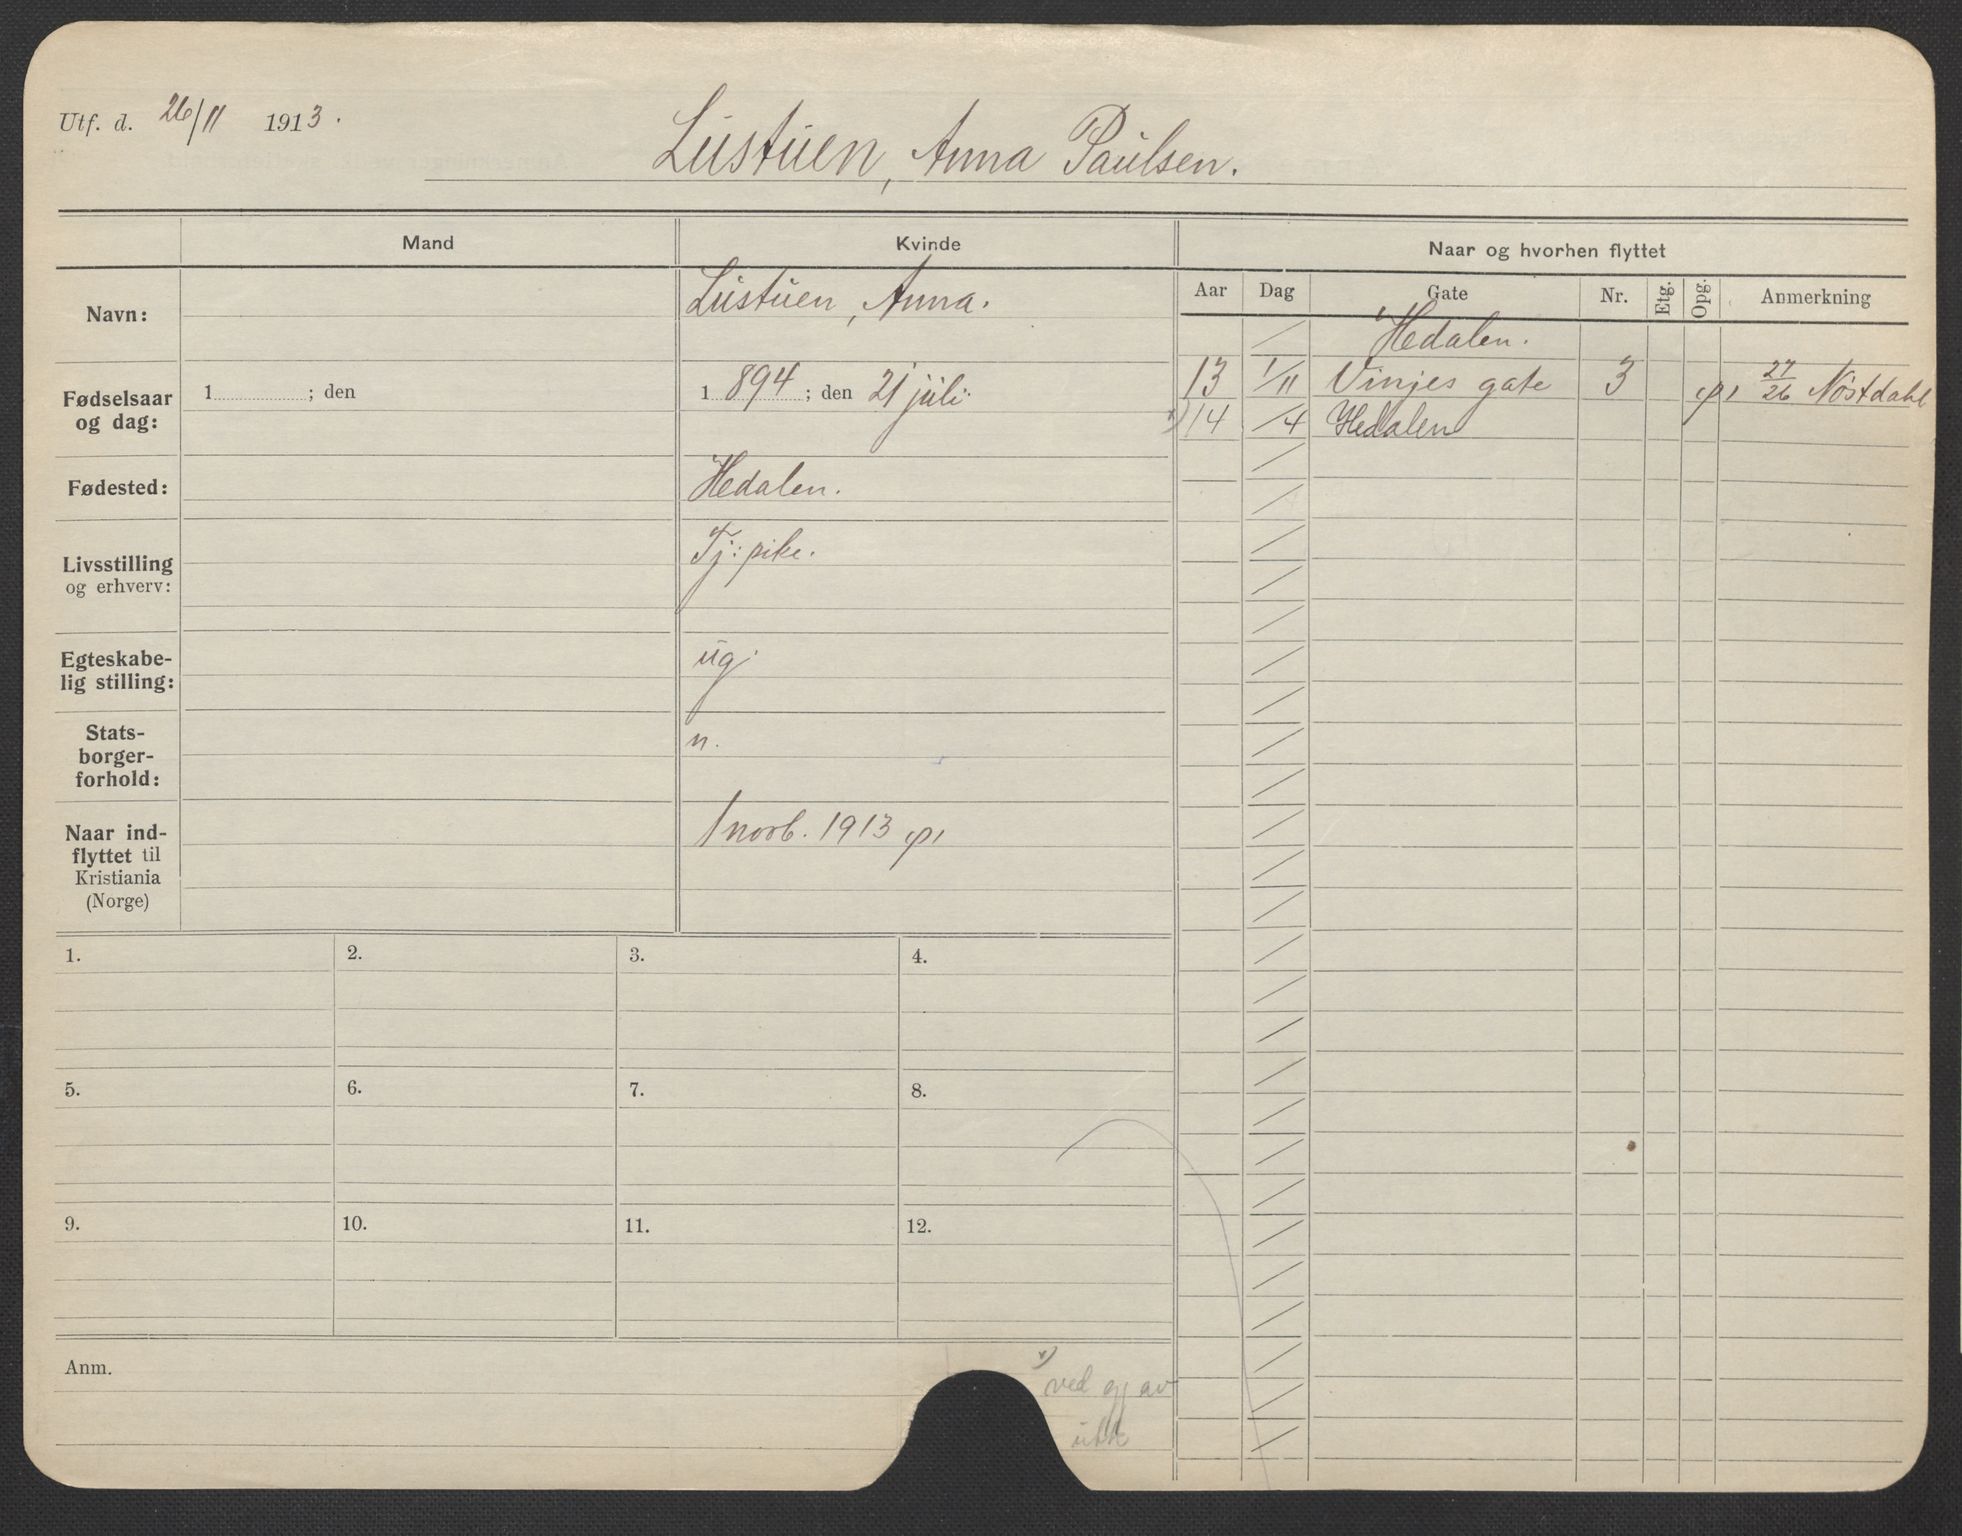 Utf. d. 26/11 1913.
Lustuen, Anna Paulsen.
Mand
Kvinde
Naar og hvorhen flyttet
Aar Dag Gate Nr. Etg. Opg. Anmerkning
Navn:
Lustuen, Anna.
Fødselsaar og dag:
1 ; den
1 894 ; den 21 juli.
Fødested:
Hedalen.
Livsstilling og erhverv:
Tj: pike.
Egteskabe-
lig stilling:
ug.
Stats-
borger-
forhold:
n.
Naar ind-
flyttet til
Kristiania
(Norge)
1 novb. 1913
/ Hedalen.
13 1/11 Vinjes gate 3 27/26 Nøstdahl
x) 14 /4 Hedalen
1. 2. 3. 4.
5. 6. 7. 8.
9. 10. 11. 12.
Anm.
x) ved gj av